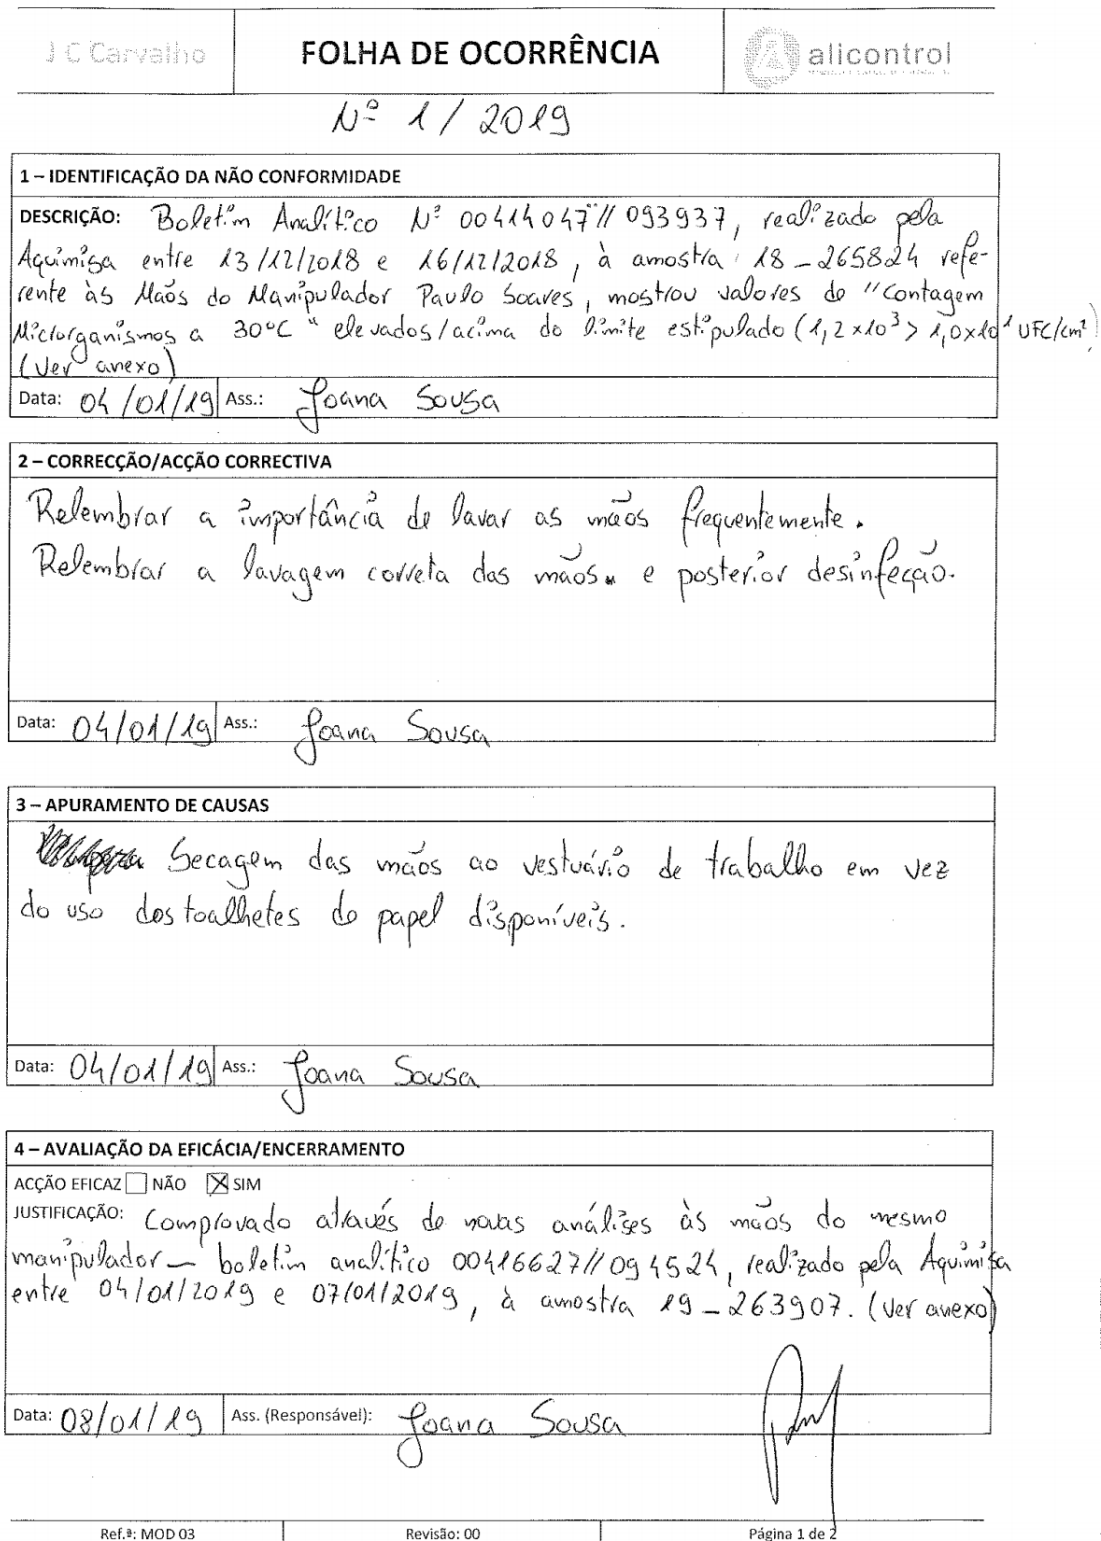 J C Carvalho
FOLHA DE OCORRÊNCIA
alicontrol
Nº 1 / 2019
1 – IDENTIFICAÇÃO DA NÃO CONFORMIDADE
DESCRIÇÃO: Boletim Analítico Nº 00414047//093937, realizado pela
Aquimisa entre 13/12/2018 e 16/12/2018, à amostra 18_265824 refe-
rente às Mãos do Manipulador Paulo Soares, mostrou valores de "Contagem
Microrganismos a 30ºC" elevados/acima do limite estipulado (1,2x10³ > 1,0x10¹ UFC/cm²)
(Ver anexo)
Data: 04/01/19 Ass.: Joana Sousa
2 – CORRECÇÃO/ACÇÃO CORRECTIVA
Relembrar a importância de lavar as mãos frequentemente.
Relembrar a lavagem correta das mãos e posterior desinfecção.
Data: 04/01/19 Ass.: Joana Sousa
3 – APURAMENTO DE CAUSAS
Secagem das mãos ao vestuário de trabalho em vez
do uso dos toalhetes de papel disponíveis.
Data: 04/01/19 Ass.: Joana Sousa
4 – AVALIAÇÃO DA EFICÁCIA/ENCERRAMENTO
ACÇÃO EFICAZ NÃO SIM
JUSTIFICAÇÃO: Comprovado através de novas análises às mãos do mesmo
manipulador – boletim analítico 00416627//094524, realizado pela Aquimisa
entre 04/01/2019 e 07/01/2019, à amostra 19_263907. (Ver anexo)
Data: 08/01/19 Ass. (Responsável): Joana Sousa
Ref.ª: MOD 03 Revisão: 00 Página 1 de 2